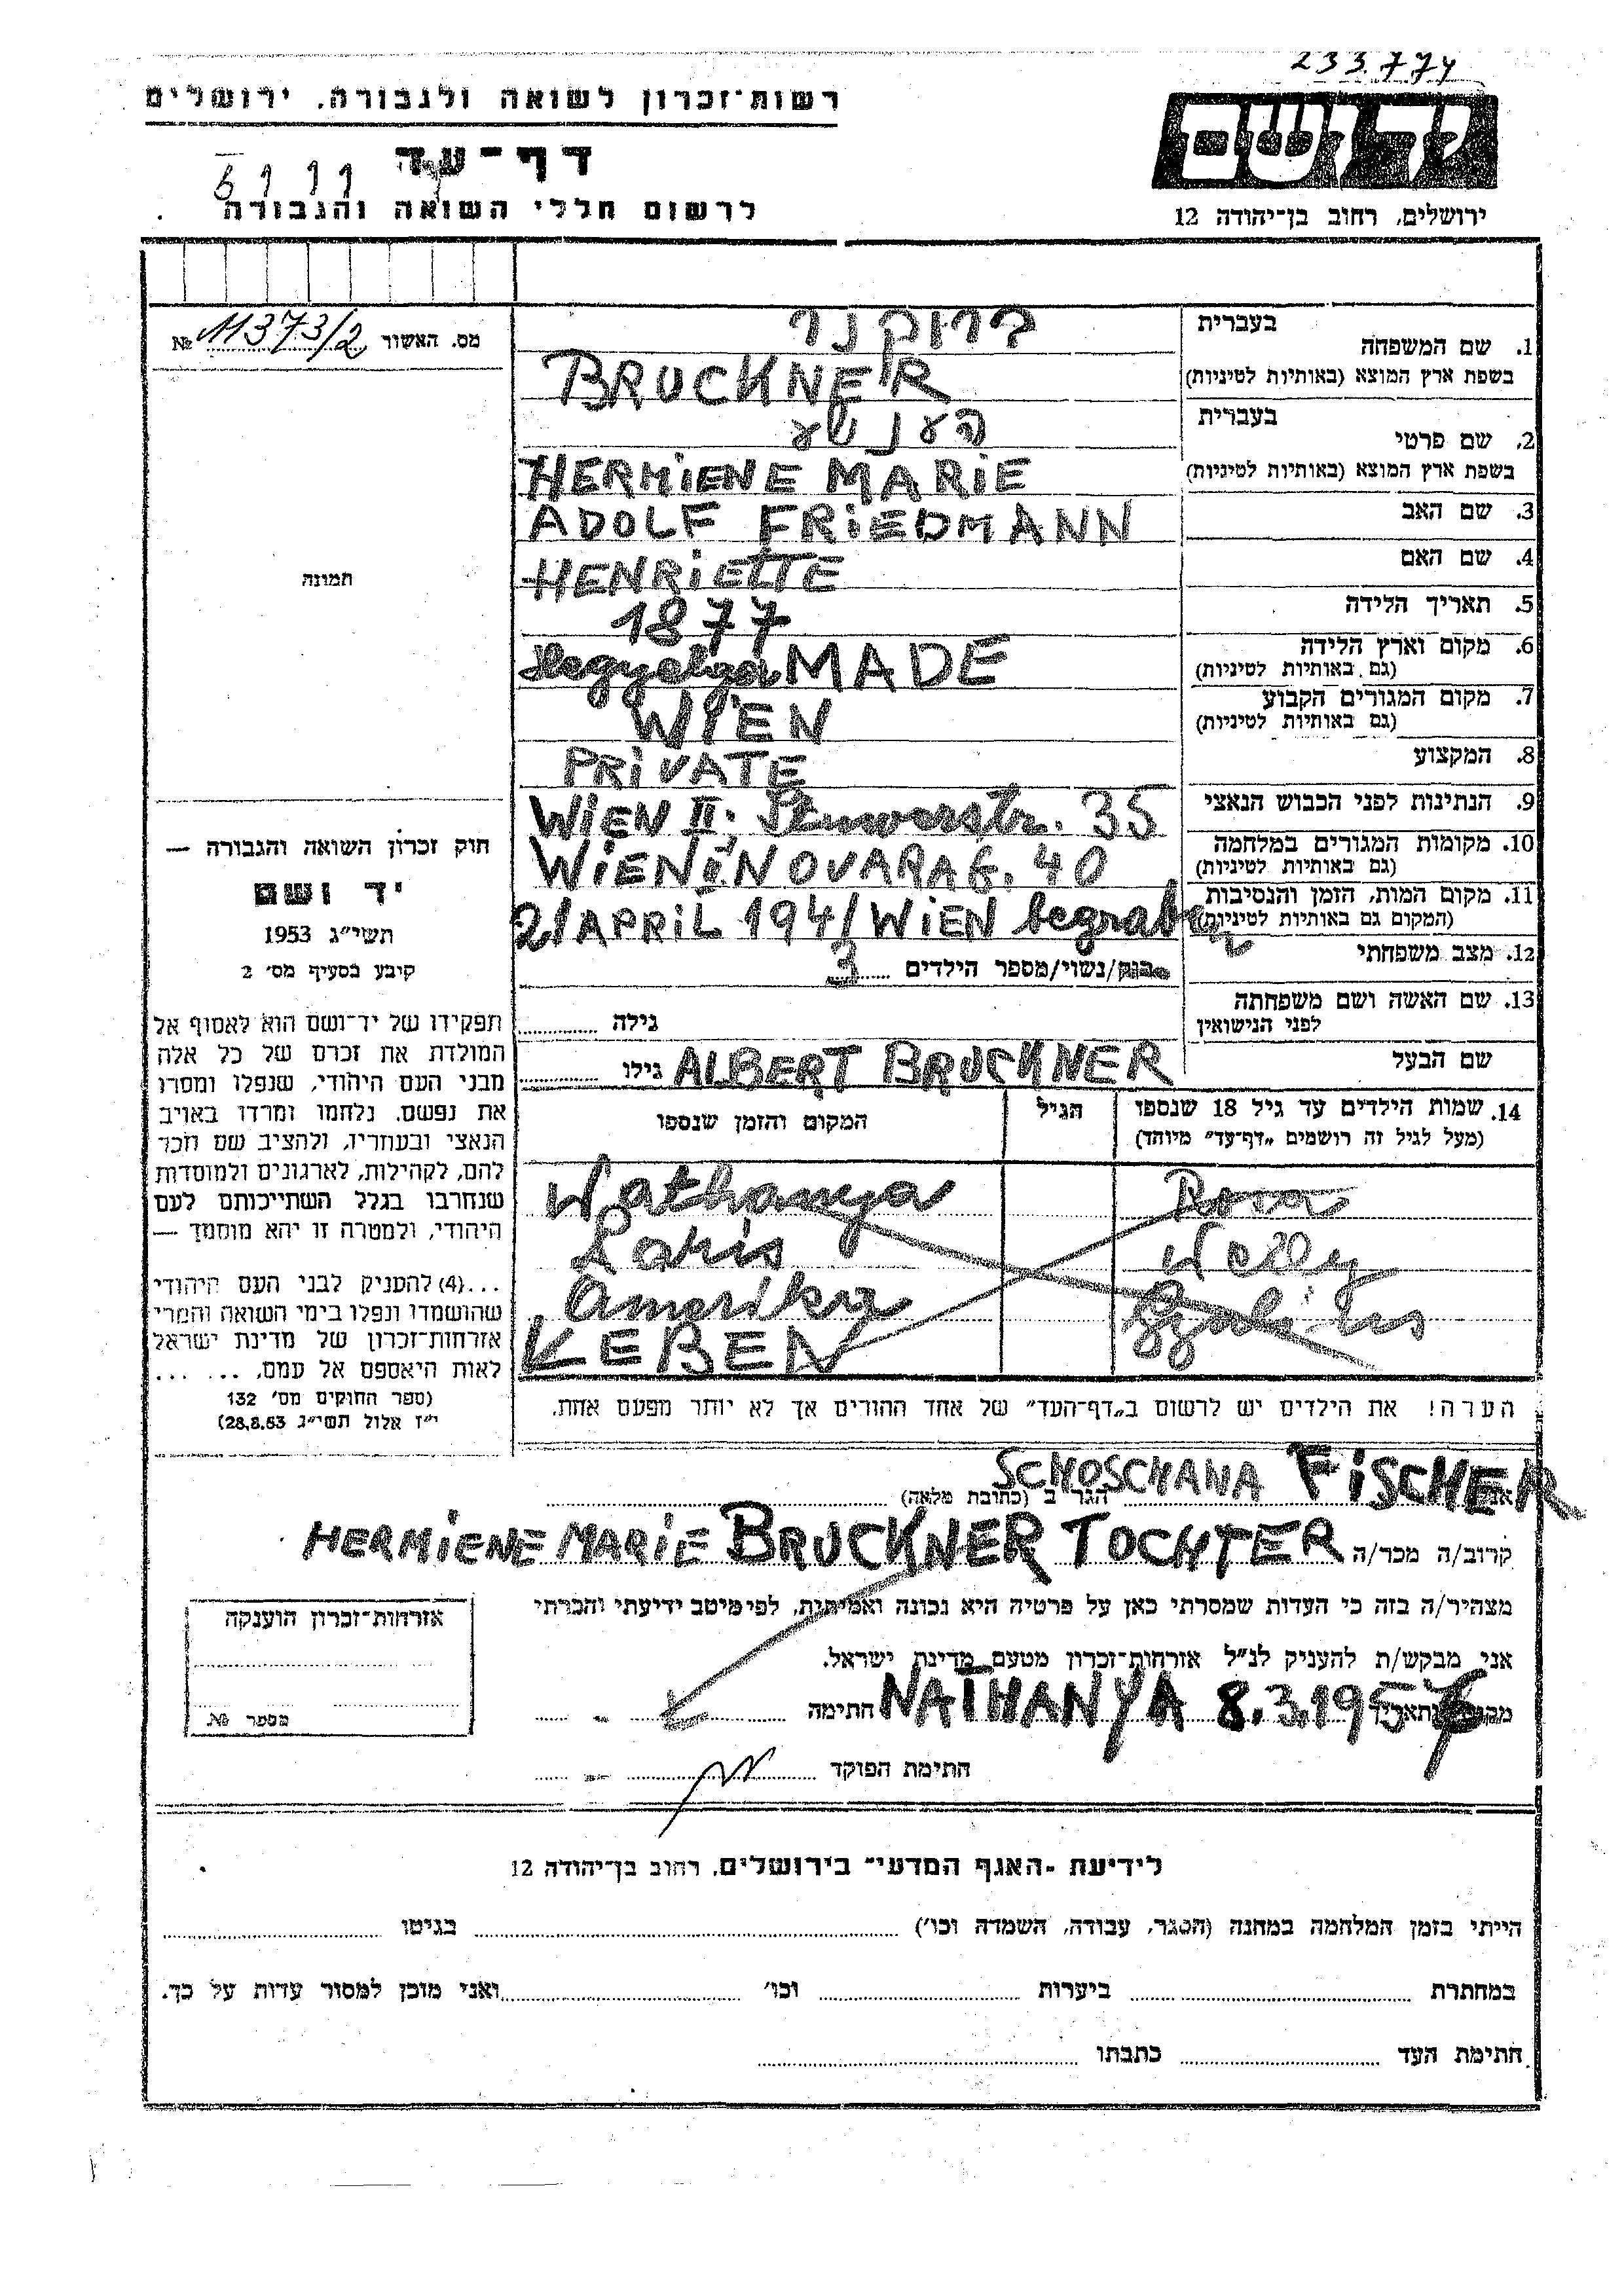 233774
רשות־זכרון לשואה ולגבורה, ירושלים
דף־עד
לרשום חללי השואה והגבורה
ירושלים, רחוב בן־יהודה 12
מס. האשור № 11373/2
תמונה
חוק זכרון השואה והגבורה —
יד ושם
תשי״ג 1953
קיבע בסעיף מס׳ 2
תפקידו של יד־ושם הוא לאסוף אל
המולדת את זכרם של כל אלה
מבני העם היהודי, שנפלו ומסרו
את נפשם, נלחמו ומרדו באויב
הנאצי ובעוזריו, ולהציב שם וזכר
להם, לקהילות, לארגונים ולמוסדות
שנחרבו בגלל השתייכותם לעם
היהודי, ולמטרה זו יהא מוסמך —
...(4) להעניק לבני העם היהודי
שהושמדו ונפלו בימי השואה והמרי
אזרחות־זכרון של מדינת ישראל
לאות היאספם אל עמם. ... ...
(ספר החוקים מס׳ 132
י״ז אלול תשי״ג 28.8.53)
1. שם המשפחה
בעברית ברוקנר
בשפת ארץ המוצא (באותיות לטיניות) BRUCKNER
2. שם פרטי
בעברית
בשפת ארץ המוצא (באותיות לטיניות) HERMIENE MARIE
3. שם האב ADOLF FRIEDMANN
4. שם האם HENRIETTE
5. תאריך הלידה 1877
6. מקום וארץ הלידה
(גם באותיות לטיניות) MADE
7. מקום המגורים הקבוע
(גם באותיות לטיניות) WIEN
8. המקצוע PRIVATE
9. הנתינות לפני הכבוש הנאצי WIEN II. 35
10. מקומות המגורים במלחמה
(גם באותיות לטיניות) WIEN II NOVARAG. 40
11. מקום המות, הזמן והנסיבות
(המקום גם באותיות לטיניות) 21 APRIL 1941 WIEN begraben
12. מצב משפחתי
רווק/נשוי/מספר הילדים 3
13. שם האשה ושם משפחתה
לפני הנישואין
גילה
שם הבעל ALBERT BRUCKNER גילו
14. שמות הילדים עד גיל 18 שנספו
(מעל לגיל זה רושמים „דף־עד״ מיוחד)
הגיל
המקום והזמן שנספו
Rosa Nathanya
Welly Paris
Amerika
LEBEN
הערה! את הילדים יש לרשום ב„דף־העד״ של אחד ההורים אך לא יותר מפעם אחת.
אני SCHOSCHANA FISCHER הגר ב (כתובת מלאה)
קרוב/ה מכר/ה HERMIENE MARIE BRUCKNER TOCHTER
מצהיר/ה בזה כי העדות שמסרתי כאן על פרטיה היא נכונה ואמיתית, לפי מיטב ידיעתי והכרתי
אני מבקש/ת להעניק לנ״ל אזרחות־זכרון מטעם מדינת ישראל.
מקום ותאריך NATHANYA 8.3.195 חתימה
חתימת הפוקד
אזרחות־זכרון הוענקה
מספר №
לידיעת „האגף המדעי״ בירושלים, רחוב בן־יהודה 12
הייתי בזמן המלחמה במחנה (הסגר, עבודה, השמדה וכו׳) בגיטו
במחתרת ביערות וכו׳ ואני מוכן למסור עדות על כך.
חתימת העד כתבתו